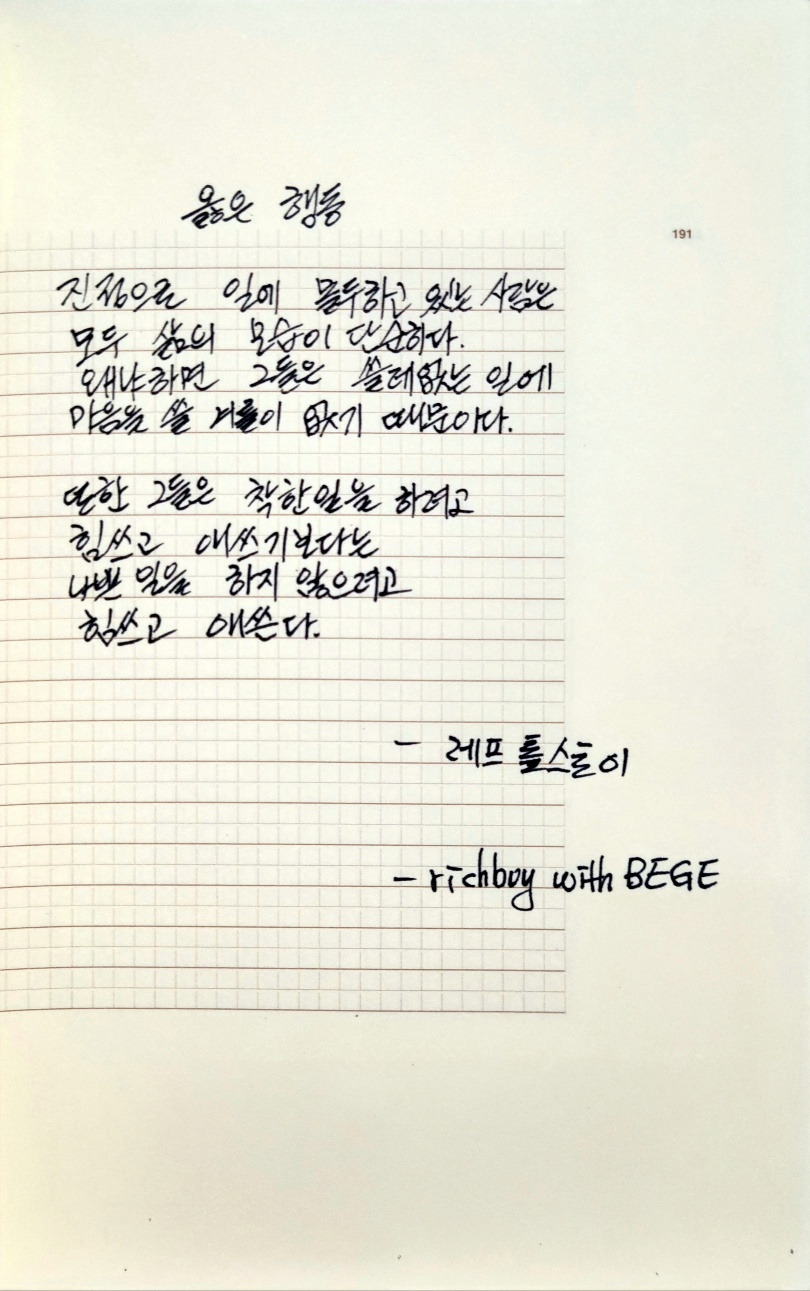 옳은 행동
191
진정으로 일에 몰두하고 있는 사람은
모두 삶의 모습이 단순하다.
왜냐하면 그들은 쓸데없는 일에
마음을 쓸 겨를이 없기 때문이다.
또한 그들은 착한일을 하려고
힘쓰고 애쓰기보다는
나쁜 일을 하지 않으려고
힘쓰고 애쓴다.
- 레프 톨스토이
- richboy with BEGE